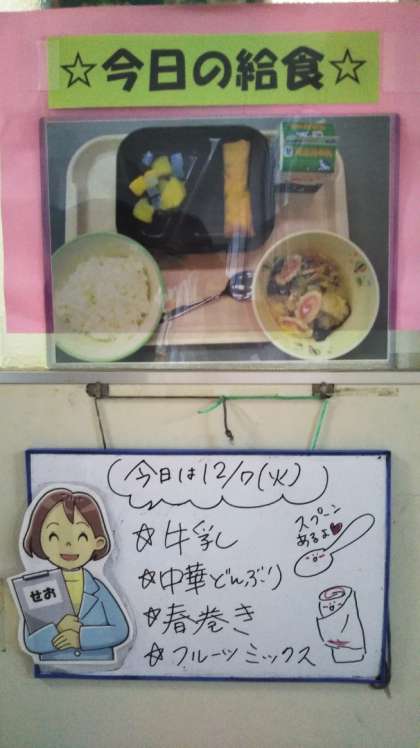 ☆今日の給食☆
今日は12/7(火)
☆牛乳
☆中華どんぶり
☆春巻き
☆フルーツミックス
スプーン
あるよ♥
せお